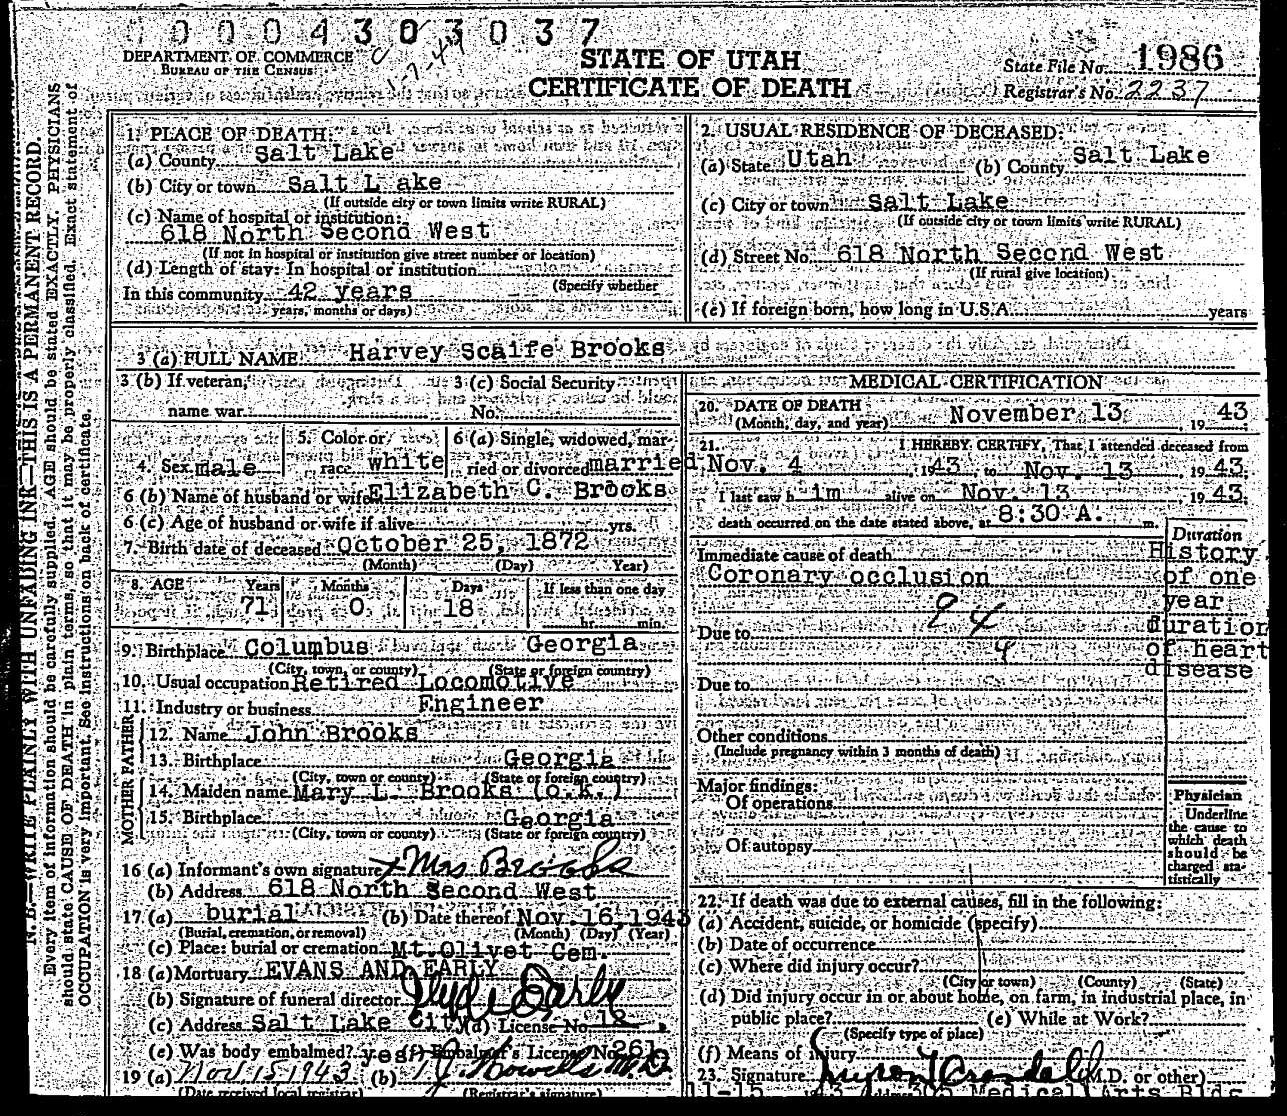 0 0 0 4 3 0 3 0 3 7
DEPARTMENT OF COMMERCE
BUREAU OF THE CENSUS
1-7-44
STATE OF UTAH
CERTIFICATE OF DEATH
State File No. 1986
Registrar's No. 2237
N. B.—WRITE PLAINLY WITH UNFADING INK—THIS IS A PERMANENT RECORD.
Every item of information should be carefully supplied. AGE should be stated EXACTLY. PHYSICIANS
should state CAUSE OF DEATH in plain terms, so that it may be properly classified. Exact statement of
OCCUPATION is very important. See instructions on back of certificate.
1. PLACE OF DEATH:
(a) County Salt Lake
(b) City or town Salt L ake
(If outside city or town limits write RURAL)
(c) Name of hospital or institution:
618 North Second West
(If not in hospital or institution give street number or location)
(d) Length of stay: In hospital or institution
(Specify whether
In this community 42 years
years, months or days)
2. USUAL RESIDENCE OF DECEASED:
(a) State Utah (b) County Salt Lake
(c) City or town Salt Lake
(If outside city or town limits write RURAL)
(d) Street No. 618 North Second West
(If rural give location)
(e) If foreign born, how long in U.S.A. years
3 (a) FULL NAME Harvey Scaife Brooks
3 (b) If veteran, 3 (c) Social Security
name war. No.
4. Sex male 5. Color or race white 6 (a) Single, widowed, married or divorced married
6 (b) Name of husband or wife Elizabeth C. Brooks
6 (c) Age of husband or wife if alive yrs.
7. Birth date of deceased October 25, 1872
(Month) (Day) Year)
8. AGE Years Months Days If less than one day
71 0 18 hr. min.
9. Birthplace Columbus Georgia
(City, town, or county) (State or foreign country)
10. Usual occupation Retired Locomotive
11. Industry or business Engineer
FATHER
12. Name John Brooks
13. Birthplace Georgia
(City, town or county) (State or foreign country)
MOTHER
14. Maiden name Mary L. Brooks (o.k.)
15. Birthplace Georgia
(City, town or county) (State or foreign country)
16 (a) Informant's own signature x Mrs Brooks
(b) Address 618 North Second West
17. (a) burial (b) Date thereof Nov. 16, 1943
(Burial, cremation, or removal) (Month) (Day) (Year)
(c) Place: burial or cremation Mt. Olivet Cem.
18 (a) Mortuary EVANS AND EARLY
(b) Signature of funeral director
(c) Address Salt Lake City (d) License No. 12
(e) Was body embalmed? yes (f) Embalmer's License No. 261
19 (a) Nov. 15 1943 (b) M. D.
(Date received local registrar) (Registrar's signature)
MEDICAL CERTIFICATION
20. DATE OF DEATH November 13 , 19 43
(Month, day, and year)
21. I HEREBY CERTIFY, That I attended deceased from
Nov. 4 , 1943 to Nov. 13 19 43.
I last saw h im alive on Nov. 13 , 19 43.
death occurred on the date stated above, at 8:30 A. m.
Duration
Immediate cause of death
Coronary occlusion
History
of one
year
duration
of heart
disease
94
Due to
Due to
Other conditions
(Include pregnancy within 3 months of death)
Major findings:
Of operations
Of autopsy
Physician
Underline
the cause to
which death
should be
charged sta-
tistically
22. If death was due to external causes, fill in the following:
(a) Accident, suicide, or homicide (specify)
(b) Date of occurrence
(c) Where did injury occur?
(City or town) (County) (State)
(d) Did injury occur in or about home, on farm, in industrial place, in
public place? (e) While at Work?
(Specify type of place)
(f) Means of injury
23. Signature (M.D. or other)
11-15 Medical Arts Bldg